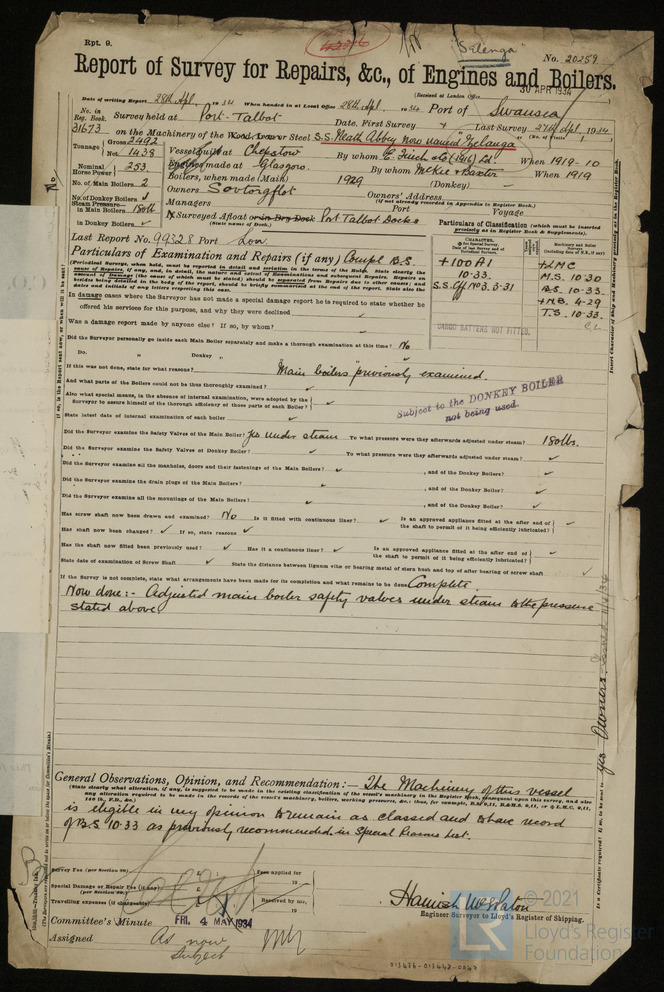 Rpt. 9.
"Selenga"
No. 20259
Report of Survey for Repairs, &c., of Engines and Boilers.
30 APR 1934
(Received at London Office
Date of writing Report 28th Apl. 1934 When handed in at Local Office 28th Apl. 1934 Port of Swansea
No. in Reg. Book. Survey held at Port-Talbot Date, First Survey Last Survey 27th Apl. 1934
31673 on the Machinery of the Wood, Iron or Steel S.S. Neath Abbey now named "Selenga"
(No. of Visits 1)
Tonnage Gross 2492 Net 1438
Vessel built at Chepstow By whom E. Finch & Co (1916) Ld. When 1919-10
Nominal Horse Power 253
Engines made at Glasgow By whom McKie & Baxter When 1919
No. of Main Boilers 2
Boilers, when made (Main) 1929 (Donkey)
No. of Donkey Boilers
Owners Sovtorgflot Owners' Address
(If not already recorded in Appendix to Register Book.)
Steam Pressure in Main Boilers 180lb
Managers Port Voyage
in Donkey Boilers
If Surveyed Afloat or in Dry Dock Port Talbot Docks
(State name of Dock.)
Last Report No. 99328 Port Lon
Particulars of Classification (which must be inserted precisely as in Register Book & Supplements).
Particulars of Examination and Repairs (if any) Compl B.S.
+100A1
10.33.
S.S. Cff No3.3-31
+LMC
M.S. 10.30
B.S. 10.33.
+N.B. 4-29
T.S. 10.33.
C.L.
CARGO BATTENS NOT FITTED.
In damage cases where the Surveyor has not made a special damage report he is required to state whether he
offered his services for this purpose, and why they were declined
Was a damage report made by anyone else? If so, by whom?
Did the Surveyor personally go inside each Main Boiler separately and make a thorough examination at this time? No
Do. " Donkey "
If this was not done, state for what reasons? "Main boilers" previously examined.
And what parts of the Boilers could not be thus thoroughly examined?
Also what special means, in the absence of internal examination, were adopted by the
Surveyor to assure himself of the thorough efficiency of those parts of each Boiler?
Subject to the DONKEY BOILER
not being used.
State latest date of internal examination of each boiler
Did the Surveyor examine the Safety Valves of the Main Boiler? Yes under steam To what pressure were they afterwards adjusted under steam? 180lbs.
Did the Surveyor examine the Safety Valves of Donkey Boiler? To what pressure were they afterwards adjusted under steam?
Did the Surveyor examine all the manholes, doors and their fastenings of the Main Boilers? , and of the Donkey Boilers?
Did the Surveyor examine the drain plugs of the Main Boilers? , and of the Donkey Boiler?
Did the Surveyor examine all the mountings of the Main Boilers? , and of the Donkey Boiler?
Has screw shaft now been drawn and examined? No Is it fitted with continuous liner? Is an approved appliance fitted at the after end of
the shaft to permit of it being efficiently lubricated?
Has shaft now been changed? If so, state reasons
Has the shaft now fitted been previously used? Has it a continuous liner? Is an approved appliance fitted at the after end of
the shaft to permit of it being efficiently lubricated?
State date of examination of Screw Shaft State the distance between lignum vitæ or bearing metal of stern bush and top of after bearing of screw shaft
If the Survey is not complete, state what arrangements have been made for its completion and what remains to be done. Complete
Now done:- Adjusted main boiler safety valves under steam to the pressure
stated above.
General Observations, Opinion, and Recommendation:- The Machinery of this vessel
is eligible in my opinion to remain as classed and to have record
of B.S. 10.33 as previously recommended in Special Reasons List.
Survey Fee (per Section 29)
Fees applied for
Special Damage or Repair Fee (if any)
(per Section 29.)
Travelling expenses (if chargeable)
Received by me,
Engineer Surveyor to Lloyd's Register of Shipping.
Committee's Minute FRI. 4 MAY 1934
Assigned As now
Subject
© 2021
LR
Lloyd's Register
Foundation